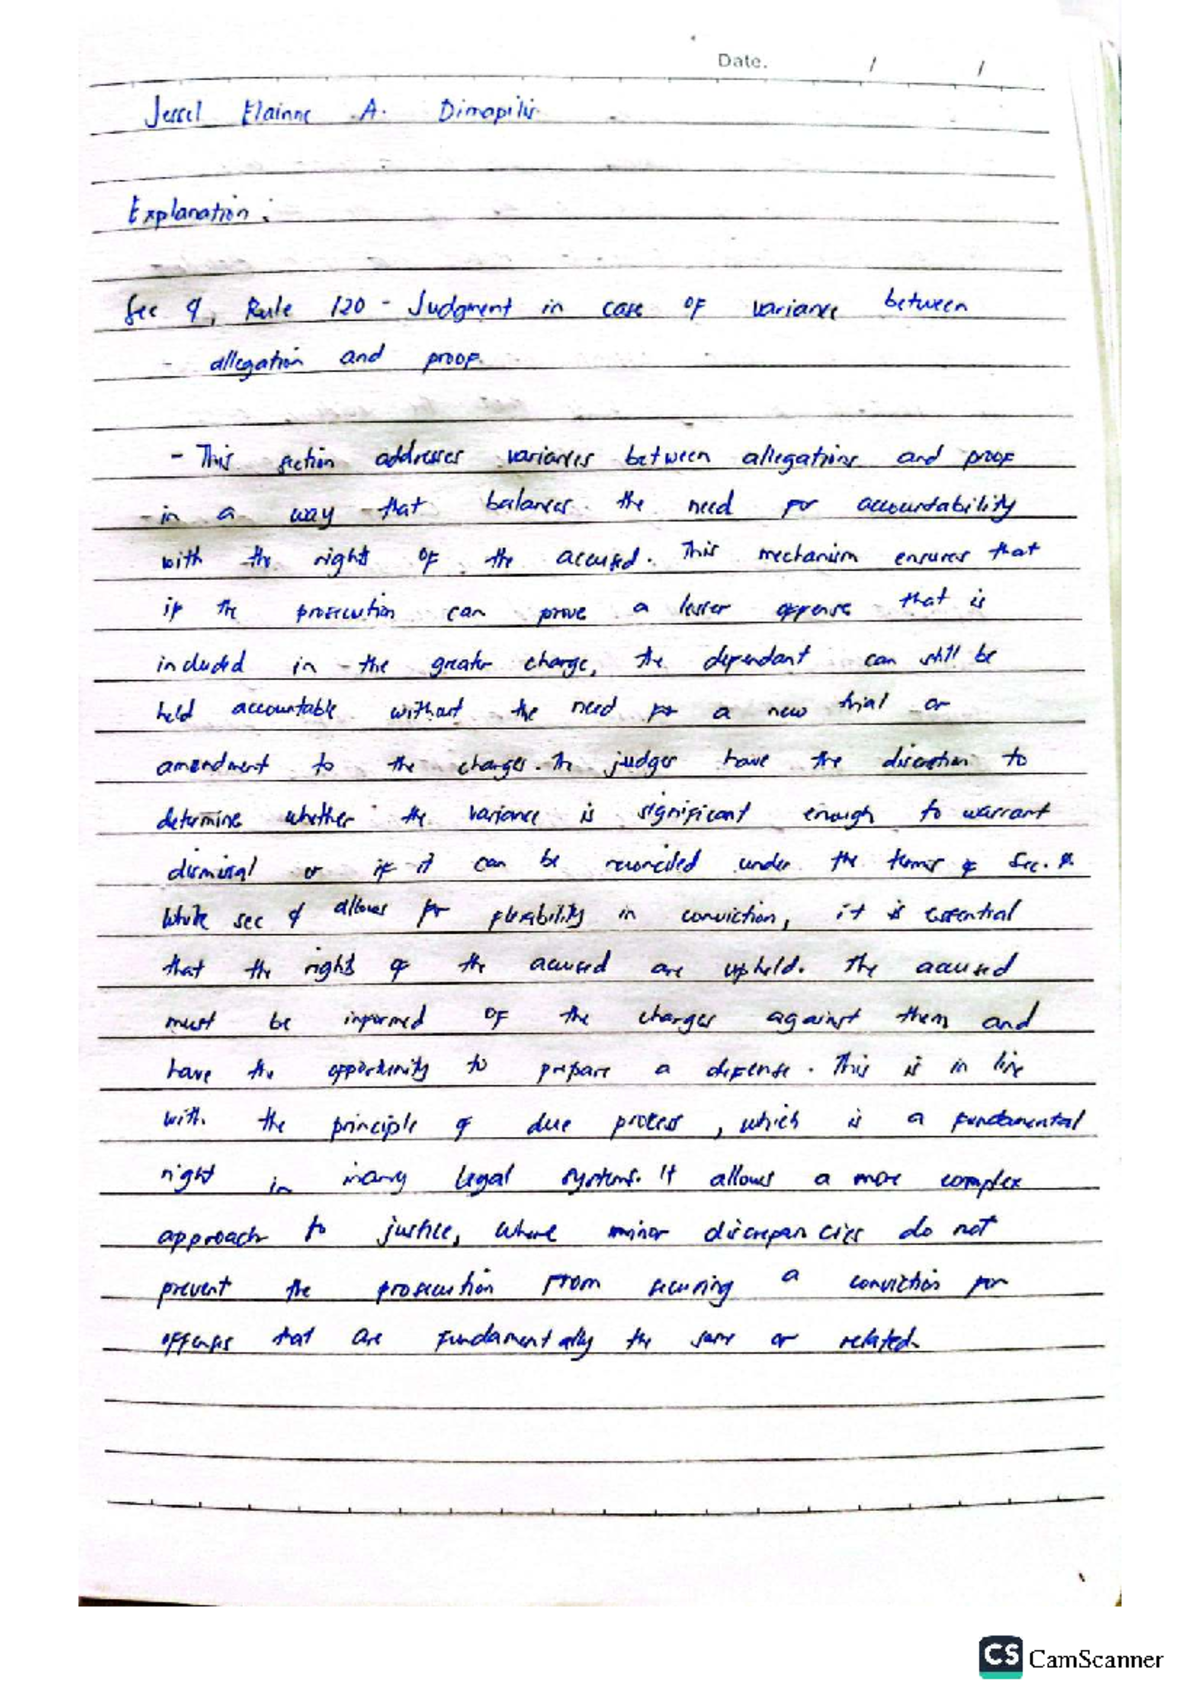 Date. / /
Jessel Elainne A. Dimapilis
Explanation:
Sec 4, Rule 120 - Judgment in case of variance between
- allegation and proof.
- This section addresses variances between allegations and proof
in a way that balances the need for accountability
with the rights of the accused. This mechanism ensures that
if the prosecution can prove a lesser offense that is
included in the greater charge, the defendant can still be
held accountable without the need for a new trial or
amendment to the charges. The judges have the discretion to
determine whether the variance is significant enough to warrant
dismissal or if it can be reconciled under the terms of Sec. 4.
While sec 4 allows for flexibility in conviction, it is essential
that the rights of the accused are upheld. The accused
must be informed of the charges against them and
have the opportunity to prepare a defense. This is in line
with the principle of due process, which is a fundamental
right in many legal systems. It allows a more complex
approach to justice, where minor discrepancies do not
prevent the prosecution from securing a conviction for
offenses that are fundamentally the same or related.
CS CamScanner